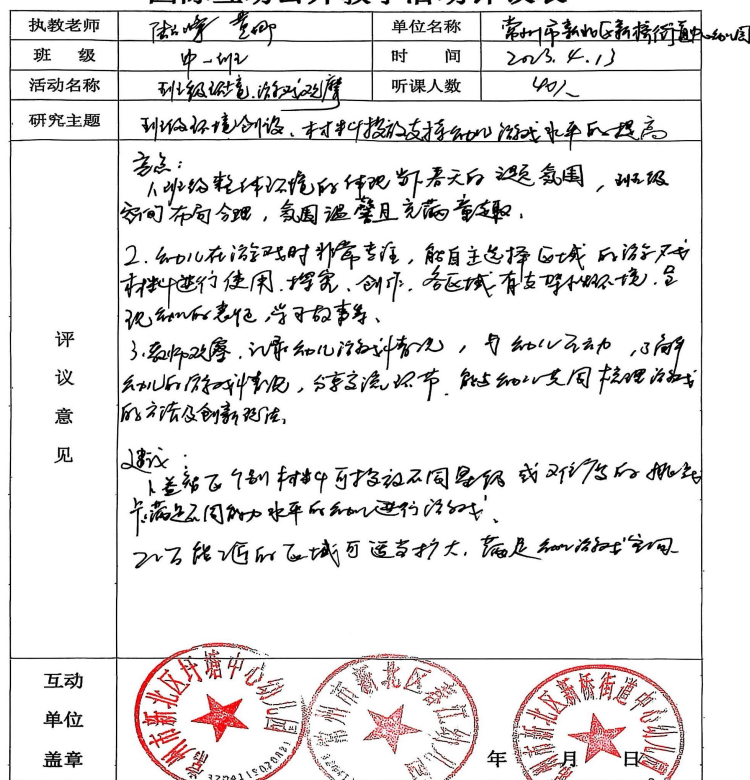 执教老师 单位名称 常州市新北区新桥街道中心幼儿园
班 级 中一班 时 间 2023.4.13
活动名称 班级环境、游戏观摩 听课人数 40人
研究主题 班级环境创设、材料投放支持幼儿游戏水平的提高
评议意见
亮点:
1、班级整体环境的体现当下春天的主题氛围,班级
空间布局合理,氛围温馨且充满童趣。
2、幼儿在游戏时非常专注,能自主选择区域的游戏
材料进行使用、探究、创作。各区域有支架性环境,呈
现幼儿的表征,学习故事等。
3、教师观察、记录幼儿游戏情况,与幼儿互动,了解
幼儿的游戏情况,分享交流环节,能与幼儿共同梳理游戏
的方法及创新玩法。
建议:
1、益智区个别材料可投放不同星级或难度的挑战
卡满足不同能力水平的幼儿进行游戏。
2、区域可适当扩大,满足幼儿游戏空间。
互动
单位
盖章
常州市新北区圩塘中心幼儿园
常州市新北区春江幼儿园
常州市新北区新桥街道中心幼儿园
年 月 日